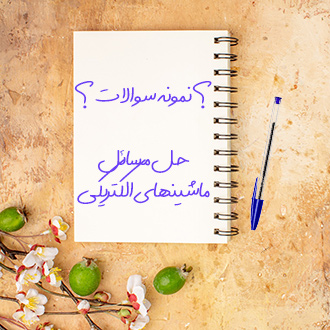 ؟ نمونه سوالات ؟
حل مسائل
ماشینهای الکتریکی